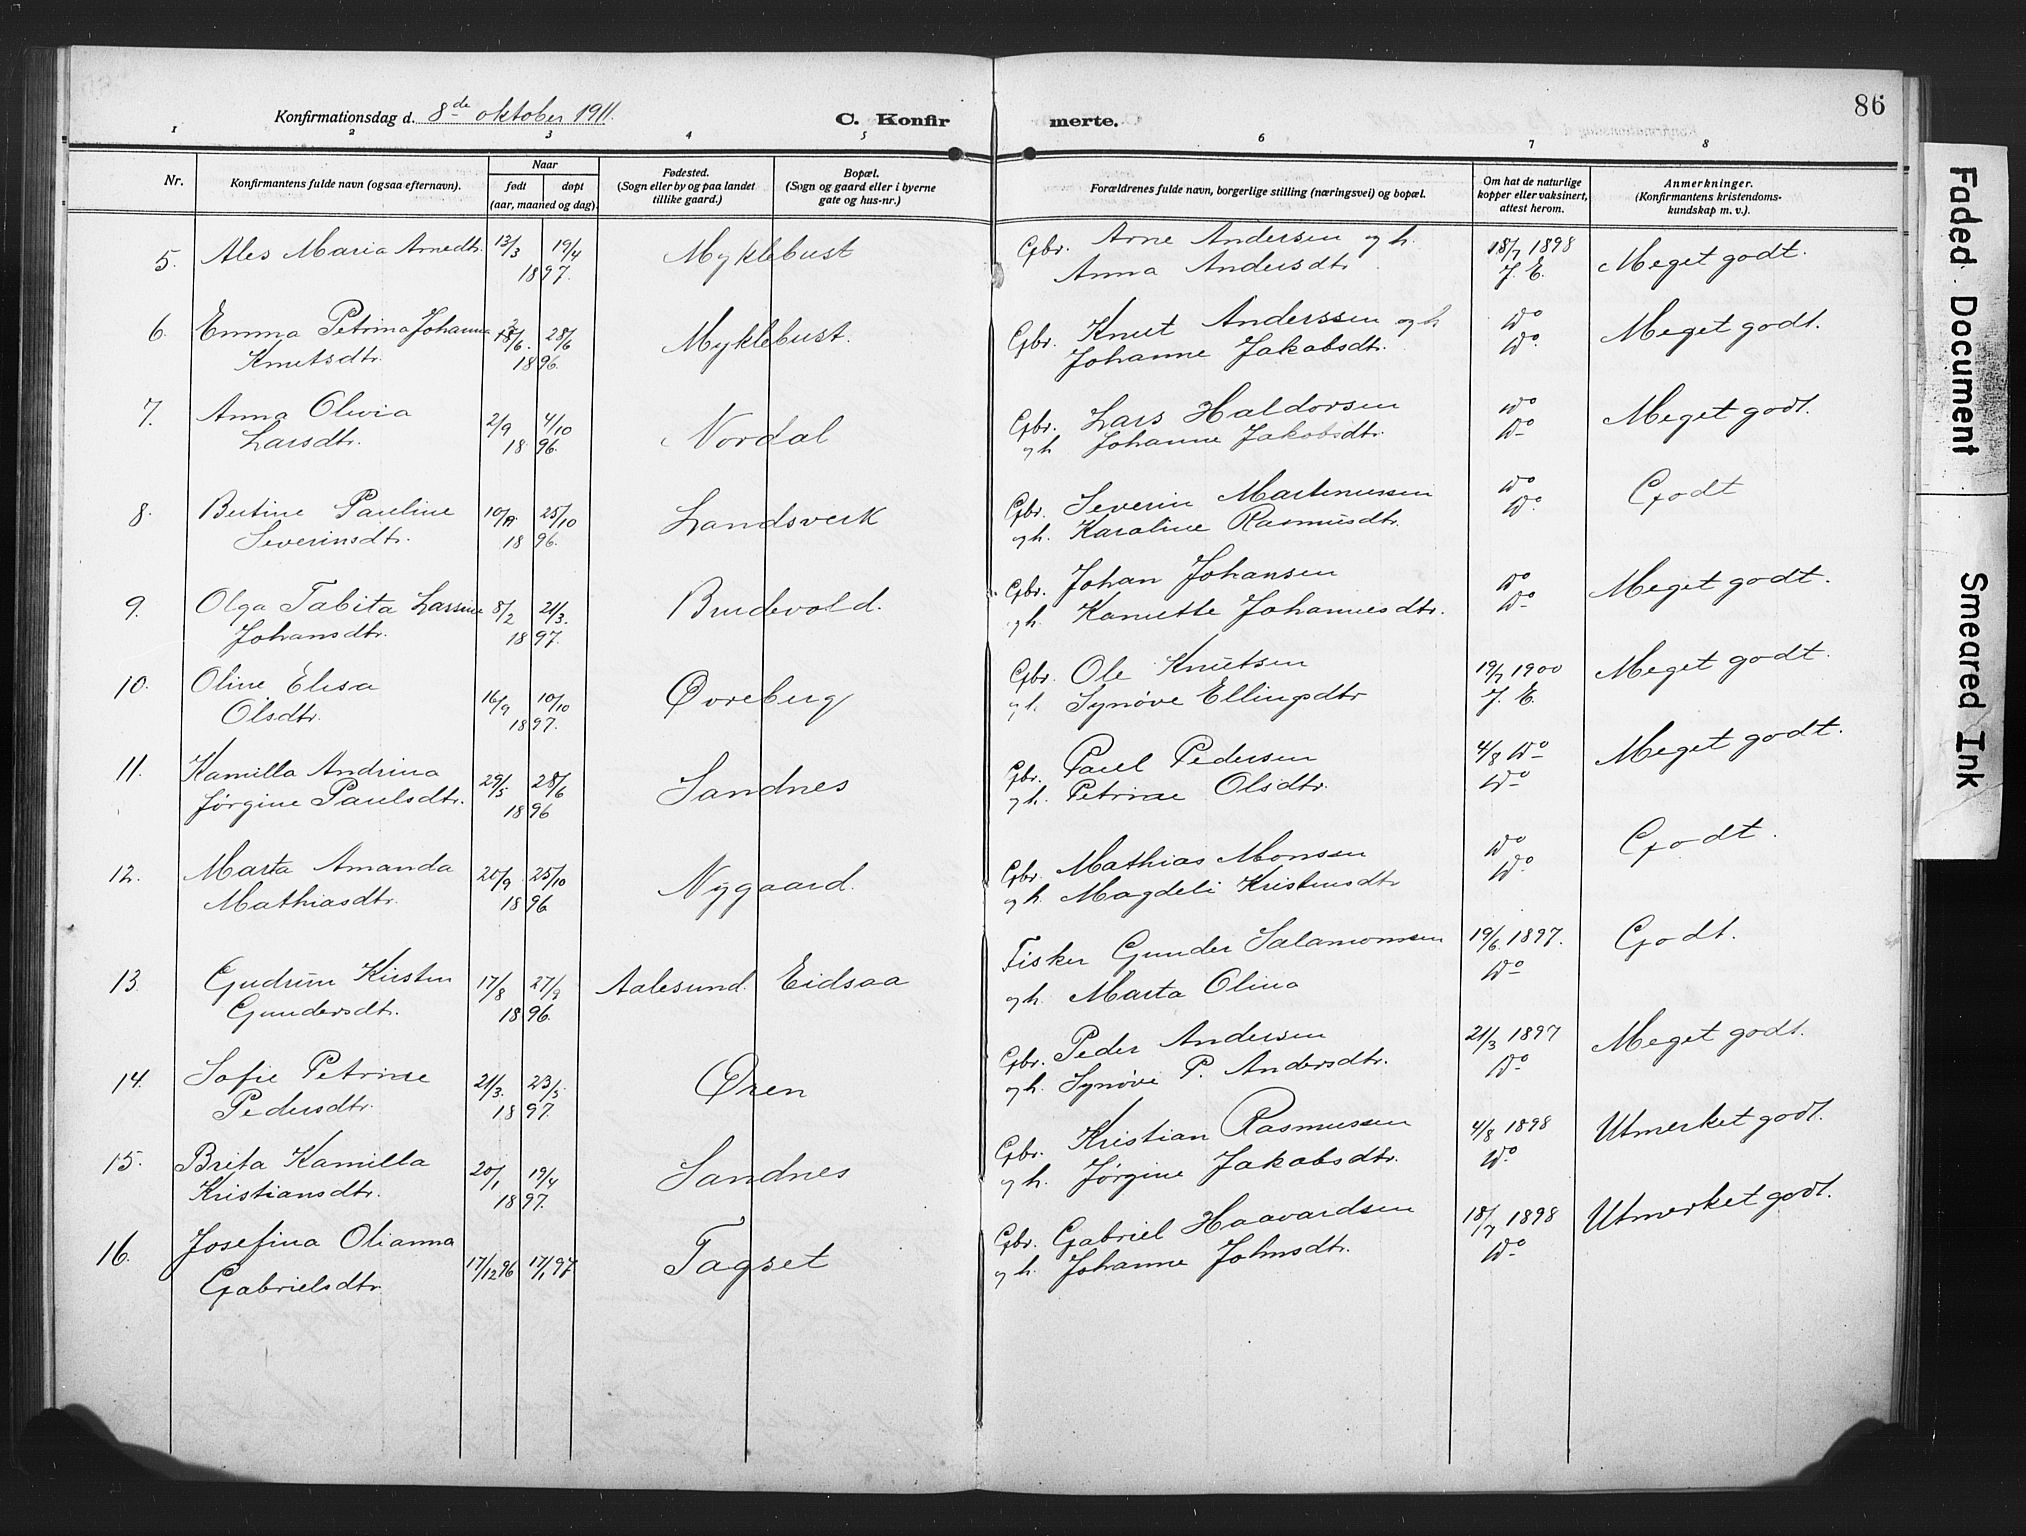 86
Konfirmationsdag d. 8de oktober 1911.
C. Konfirmerte.
1 2 3 4 5 6 7 8
Nr.
Konfirmantens fulde navn (ogsaa efternavn).
Naar
født døpt
(aar, maaned og dag).
Fødested.
(Sogn eller by og paa landet
tillike gaard.)
Bopæl.
(Sogn og gaard eller i byerne
gate og hus-nr.)
Forældrenes fulde navn, borgerlige stilling (næringsvei) og bopæl.
Om hat de naturlige
kopper eller vaksinert,
attest herom.
Anmerkninger.
(Konfirmantens kristendoms-
kundskap m. v.).
5. Ales Maria Arnedtr. 13/3 19/4 Myklebust Gbr. Arne Andersen og h. 18/7 1898 Meget godt.
1897. Anna Andersdtr. J. E.
6. Emma Petrina Johanna 28/6 Myklebust. Gbr. Knut Anderssen og h. Do Meget godt.
Knutsdtr. 1896. Johanne Jakobsdtr. Do
7. Anna Olivia 2/9 4/10 Nordal Gbr. Lars Haldorsen Do Meget godt.
Larsdtr. 1896. og h. Johanne Jakobsdtr. Do
8. Bertine Pauline 25/10 Landsverk Gbr. Severin Martinussen Do Godt
Severinsdtr. 1896. og h. Karoline Rasmusdtr. Do
9. Olga Tabita Larsine 8/2 21/3. Brudevold. Gbr. Johan Johansen Do Meget godt.
Johansdtr. 1897. og h. Johannesdtr. Do
10. Oline Elisa 16/9 10/10 Øvreberg Gbr. Ole Knutsen 19/7 1900 Meget godt.
Olsdtr. 1897. og h. Synøve Ellingsdtr J. E.
11. Kamilla Andrina 29/5 28/6 Sandnes Gbr. Paul Pedersen 4/8 Do Meget godt.
Jørgine Paulsdtr. 1896 og h. Petrine Olsdtr. Do
12. Marta Amanda 20/9 25/10 Nygaard. Gbr. Mathias Monsen Do Godt.
Mathiasdtr. 1896. og h. Magdeli Kristensdtr Do
13. Gudrun Kirsten 17/8 27/9 Aalesund. Eidsaa Fisker Gunder Salamomsen 19/6 1897. Godt.
Gundersdtr. 1896. og h. Marta Olina Do
14. Sofie Petrine 21/3. 23/5 Øren Gbr. Peder Andersen 21/3 1897 Meget godt.
Pedersdtr. 1897. og h. Synøve P. Andersdtr. Do
15. Brita Kamilla 20/1 19/4 Sandnes Gbr. Kristian Rasmussen 4/8 1898 Utmerket godt.
Kristiansdtr. 1897. og h. Jørgine Jakobsdtr. Do
16. Josefina Olianna 17/12 96 17/1 97 Tagset Gbr. Gabriel Haavardsen 18/7 1898 Utmerket godt.
Gabrielsdtr. og h. Johanne Johnsdtr. Do
Faded Document
Smeared Ink